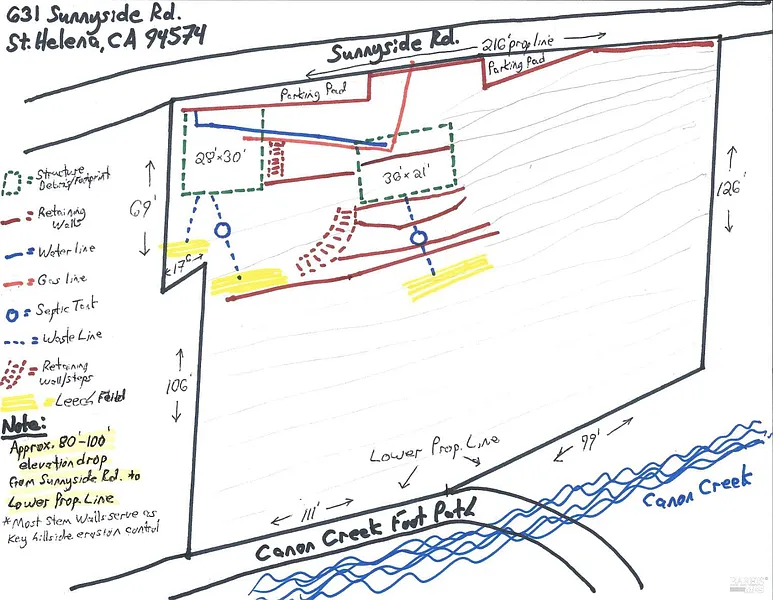 631 Sunnyside Rd.
St. Helena, CA 94574
Sunnyside Rd.
216' prop line
Parking Pad
Parking Pad
28' x 30'
36' x 21'
69'
17'
106'
126'
99'
111'
Lower Prop. Line
Canon Creek Foot Path
Canon Creek
= Structure
Debris/Footprint
= Retaining
Walls
= Water line
= Gas line
= Septic Tank
= Waste Line
= Retaining
Wall/steps
= Leech Feild
Note:
Approx. 80'-100'
elevation drop
from Sunnyside Rd. to
Lower Prop. Line
*Most Stem Walls serve as
Key hillside erosion control